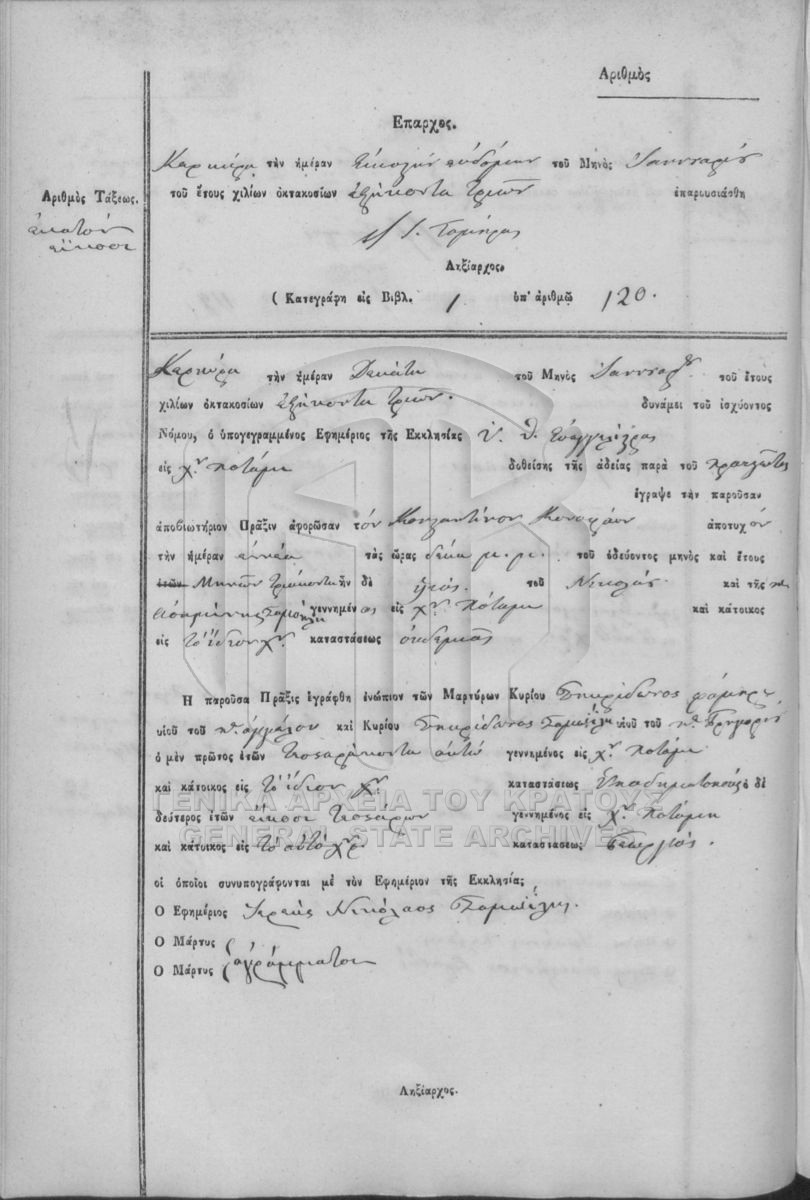 Αριθμὸς
Επαρχος.
Κερκύρα τὴν ἡμέραν Εἰκοστὴν ἑβδόμην τοῦ Μηνὸς Ἰαννουαρίου
Αριθμὸς Τάξεως. τοῦ ἔτους χιλίων ὀκτακοσίων ἑξήκοντα τριῶν ἐπαρουσιάσθη
ἑκατὸν
εἴκοσι
Ληξίαρχος.
(Κατεγράφη εἰς Βιβλ. 1 ὑπ' ἀριθμῷ 120.
Κερκύρα τὴν ἡμέραν Δεκάτη τοῦ Μηνὸς Ἰαννουαρ. τοῦ ἔτους
χιλίων ὀκτακοσίων ἑξήκοντα τριῶν. δυνάμει τοῦ ἰσχύοντος
Νόμου, ὁ ὑπογεγραμμένος Εφημέριος τῆς Εκκλησίας Υ. Θ. Εὐαγγελίστρας
εἰς χν. Ποτάμι δοθείσης τῆς ἀδείας παρὰ τοῦ
ἔγραψε τὴν παροῦσαν
ἀποβιωτήριον Πρᾶξιν ἀφορῶσαν τὸν Κονσταντῖνον ἀποτυχὸν
τὴν ἡμέραν ἐννέα τὰς ὥρας δέκα μ.μ. τοῦ ὁδεύοντος μηνὸς καὶ ἔτους
ἐτῶν Μηνῶν τριάκοντα ἦν δὲ υἱὸς τοῦ Νικολάου καὶ τῆς
γεννημένος εἰς χν. Ποτάμι καὶ κάτοικος
εἰς τὸ ἴδιον χν. καταστάσεως οὐδεμιᾶς
Η παροῦσα Πρᾶξις ἐγράφθη ἐνώπιον τῶν Μαρτύρων Κυρίου Σπυρίδωνος
υἱοῦ τοῦ καὶ Κυρίου Σπυρίδωνος Σαμοΐλη υἱοῦ τοῦ π. Γρηγορίου
ὁ μὲν πρῶτος ἐτῶν τεσσαράκοντα ὀκτὼ γεννημένος εἰς χν. Ποτάμι
καὶ κάτοικος εἰς τὸ ἴδιον χν. καταστάσεως ὁ δὲ
δεύτερος ἐτῶν εἴκοσι τεσσάρων γεννημένος εἰς χν. Ποτάμι
καὶ κάτοικος εἰς τὸ αὐτὸ χν. καταστάσεως Γεωργός.
οἱ ὁποῖοι συνυπογράφονται μὲ τὸν Εφημέριον τῆς Εκκλησία;
Ο Εφημέριος Ἱερεὺς Νικόλαος Σαμοΐλης.
Ο Μάρτυς
Ο Μάρτυς ἀγράμματοι
Ληξίαρχος.
ΓΕΝΙΚΑ ΑΡΧΕΙΑ ΤΟΥ ΚΡΑΤΟΥΣ
GENERAL STATE ARCHIVES